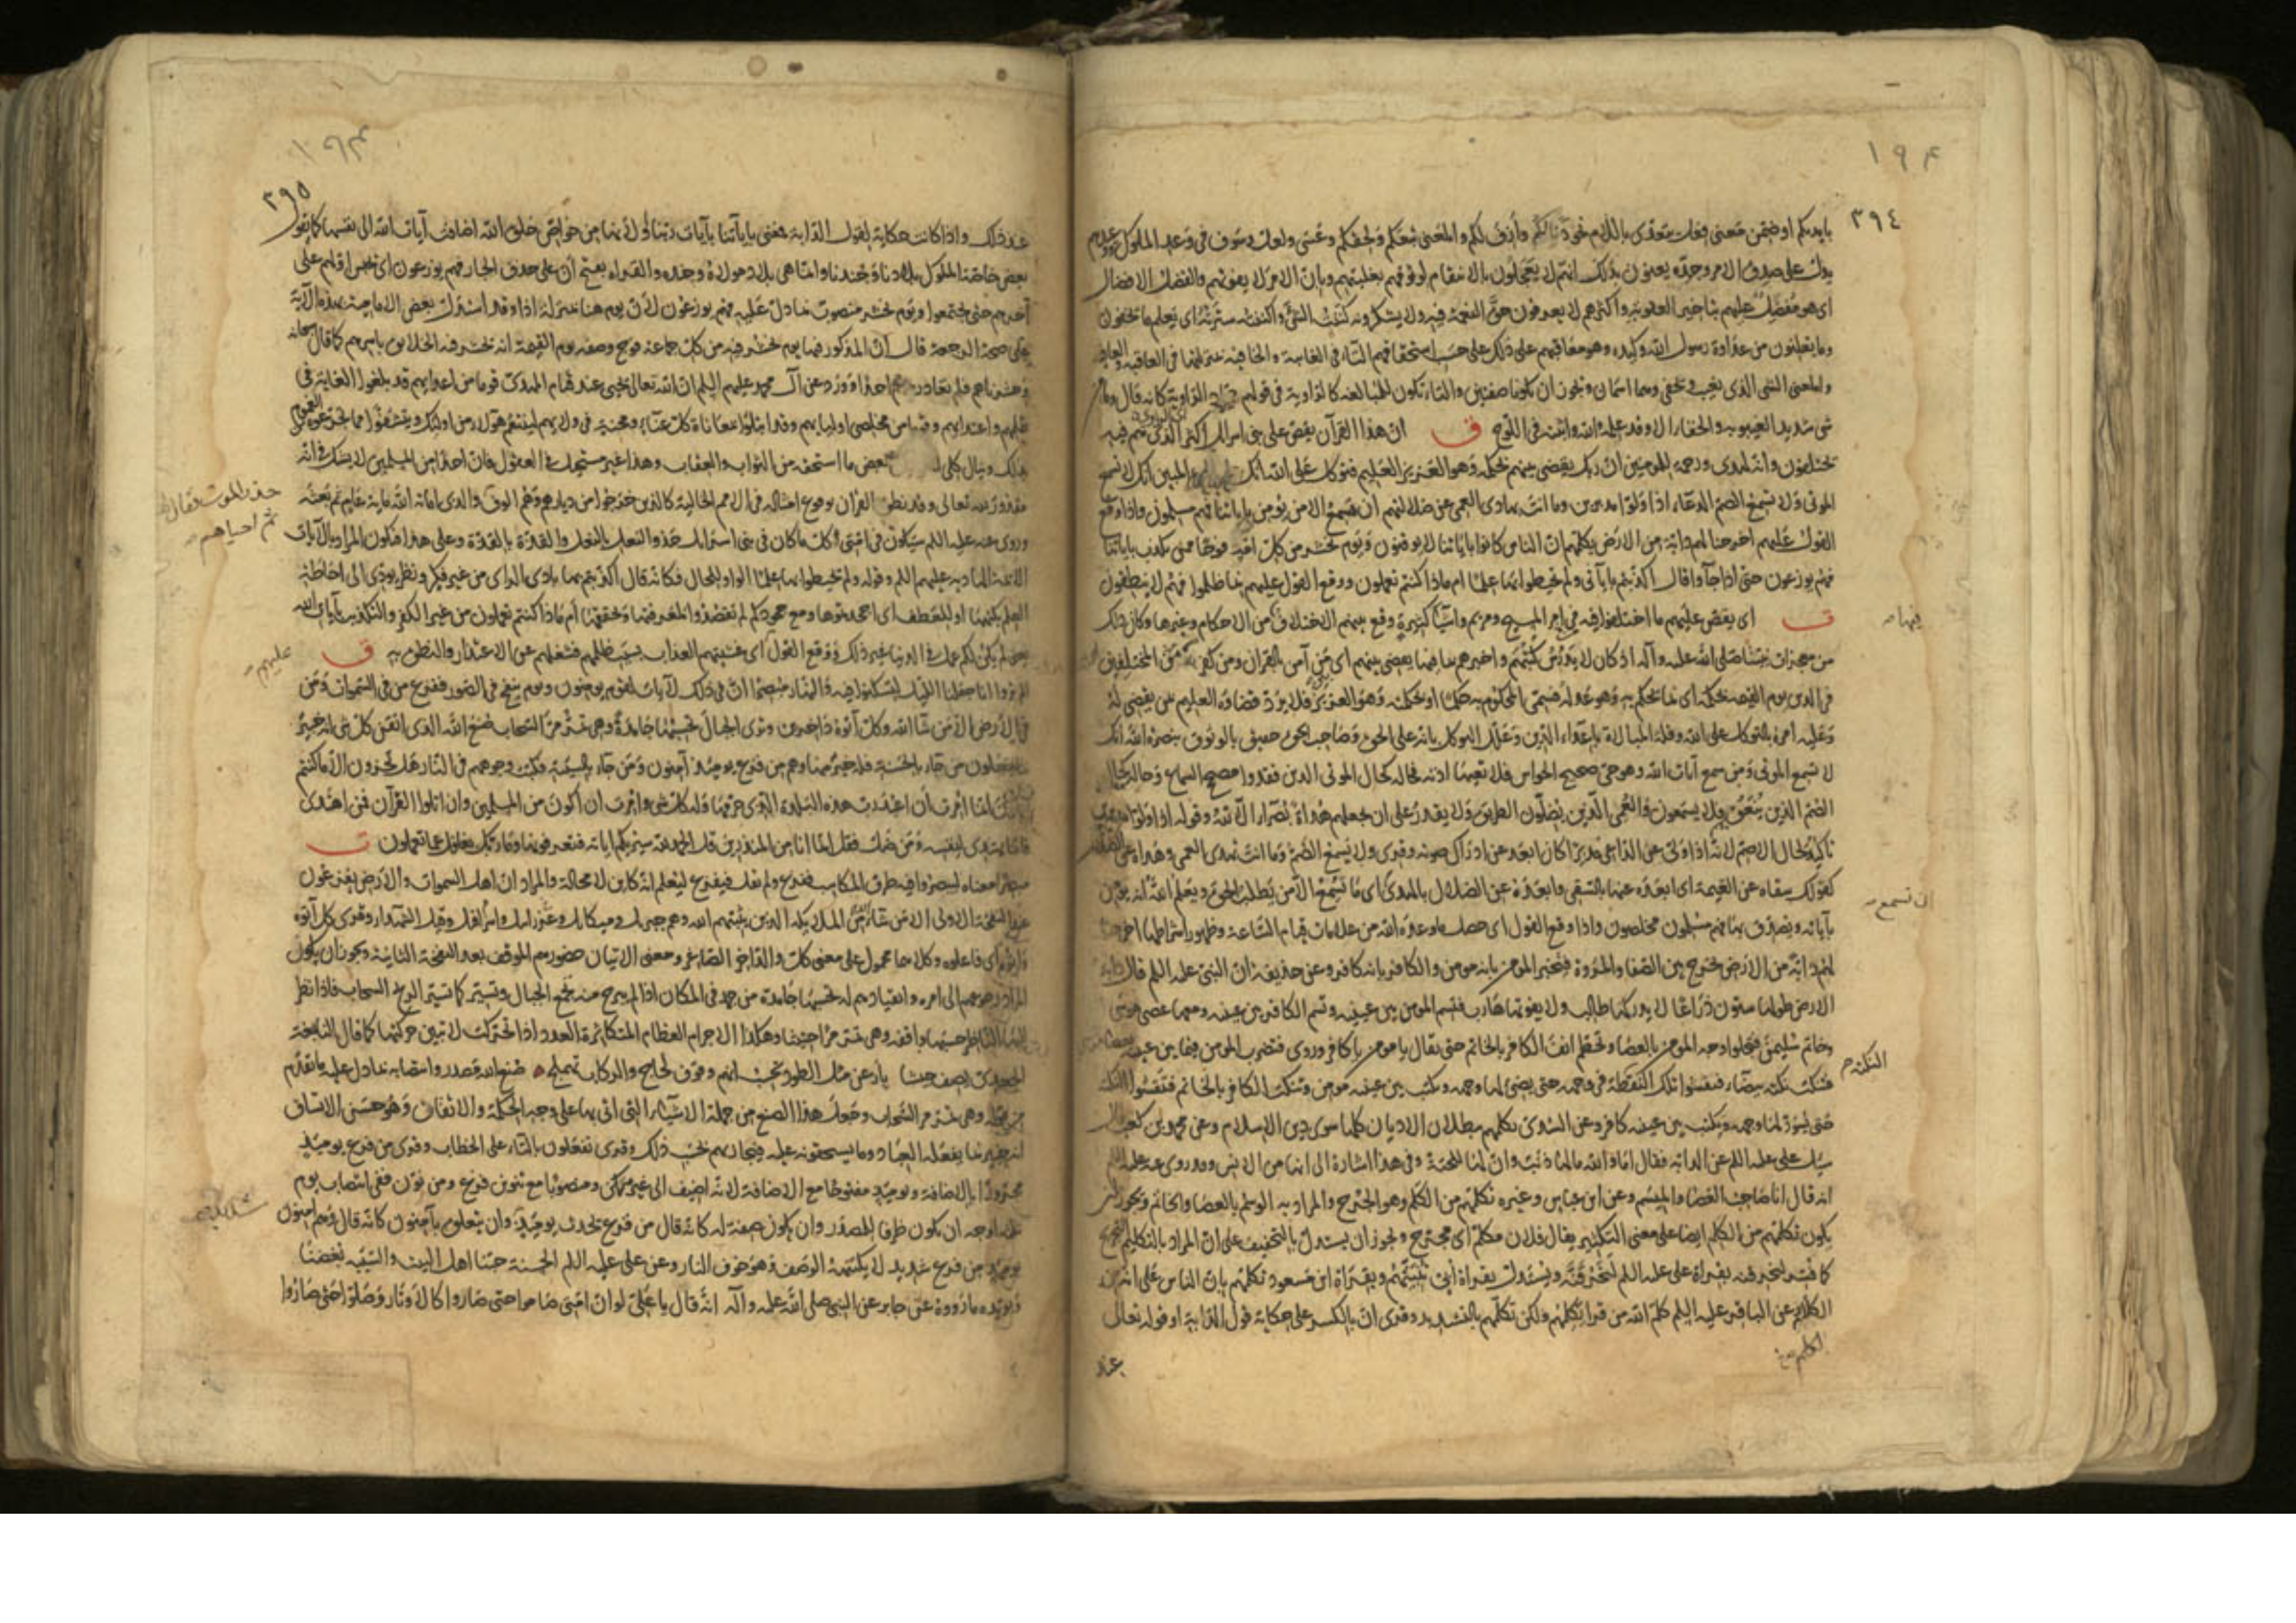 ١٩٤
٣٩٤
بايديكم او ضمن معنى فعل يتعدى باللام نحو دنا لكم وأزف لكم والمعنى تبعكم ولحقكم وعسى ولعل وسوف في وعد الملوك ووعيدهم
يدل على صدق الامر وجده يعنون بذلك انهم لا يعجلون بالانتقام لوثوقهم بغلبتهم وبان الامر لا يفوتهم والفضل الافضال
اى هو مفضل عليهم بتاخير العقوبة واكثرهم لا يعرفون حق النعمة فيه ولا يشكرونه كننت الشئ واكننته سترته اى يعلم ما يخفون
وما يعلنون من عداوة رسول الله وكيده وهو معاقبهم على ذلك على حسب استحقاقهم التاء في الغايبة والخافية بمنزلتها في العاقبة والعافية
والمعنى الشئ الذى يغيب ويخفى وهما اسمان ويجوز ان يكونا صفتين والتاء تكون للمبالغة كالراوية في قولهم الراوية كانه قال وما من
شئ شديد الغيبوبة والخفاء الا وقد علمه الله واثبته في اللوح ق ان هذا القرآن يقص على بنى اسرائيل اكثر الذى هم فيه
يختلفون وانه لهدى ورحمة للمؤمنين ان ربك يقضى بينهم بحكمه وهو العزيز العليم فتوكل على الله انك على الحق المبين انك لا تسمع
الموتى ولا تسمع الصم الدعاء اذا ولوا مدبرين وما انت بهادى العمى عن ضلالتهم ان تسمع الا من يؤمن باياتنا فهم مسلمون واذا وقع
القول عليهم اخرجنا لهم دابة من الارض تكلمهم ان الناس كانوا باياتنا لا يوقنون ويوم نحشر من كل امة فوجا ممن يكذب باياتنا
فهم يوزعون حتى اذا جاؤا قال اكذبتم باياتى ولم تحيطوا بها علما ام ماذا كنتم تعملون ووقع القول عليهم بما ظلموا فهم لا ينطقون
ت اى يقص عليهم ما اختلفوا فيه من امر المسيح ومريم واشياء كثيرة وقع بينهم الاختلاف من الاحكام وغيرها وكان ذلك
من معجزات نبينا صلى الله عليه وآله اذ كان لا يدرس كتبهم واخبرهم بما فيها يقضى بينهم اى من آمن بالقران ومن كفر به من المختلفين
في الدين يوم القيمة بحكمه اى بما يحكم به وهو عدله فسمى المحكوم به حكما او بحكمته وهو العزيز فلا يرد قضاؤه العليم بمن يقضى له
وعليه امره بالتوكل على الله وقلة المبالاة باعداء الدين وعلل التوكل بانه على الحق وصاحب الحق حقيق بالوثوق بنصرة الله انك
لا تسمع الموتى ومن سمع آيات الله وهو حى صحيح الحواس فلا تعيها اذنه فحاله كحال الموتى الذين فقدوا مصحح السماع وحاله كحال
الصم الذين ينعق بهم فلا يسمعون والعمى الذين يضلون الطريق ولا يقدر على ان يجعلهم هداة بصراء الا الله وقوله اذا ولوا مدبرين
تاكيد لحال الاصم لانه اذا ولى عن الداعى مدبرا كان ابعد عن ادراك صوته وقرئ ولا يسمع الصم وما انت تهدى العمى وهداه عن الضلال
كقولك سقاه عن العيمة اى ابعده عنها بالسقى وابعده عن الضلال بالهدى اى ما تسمع الا من يطلب الحق ويعلم الله انه يؤمن
بآياته ويصدق بها فهم مسلمون مخلصون واذا وقع القول اى حصل ما وعده الله من علامات قيام الساعة وظهور اشراطها اخرجنا
لهم دابة من الارض تخرج بين الصفا والمروة فتخبر المؤمن بانه مومن والكافر بانه كافر وعن حذيفة ان النبى عليه السلم قال دابة
الارض طولها ستون ذراعا لا يدركها طالب ولا يفوتها هارب فتسم المومن بين عينيه وتسم الكافر بين عينيه ومعها عصى موسى
وخاتم سليمن فتجلو وجه المومن بالعصا وتحطم انف الكافر بالخاتم حتى يقال يا مومن يا كافر وروى فتضرب المومن فيما بين عينيه بعصا موسى
فتنكت نكتة بيضاء فتفشو تلك النقطة في وجهه حتى يضئ لها وجهه ويكتب بين عينيه مومن وتنكت الكافر بالخاتم فتفشو النكتة
حتى يسود لها وجهه ويكتب بين عينيه كافر وعن السدى تكلمهم ببطلان الاديان كلها سوى دين الاسلام وعن محمد بن كعب قال
سئل على عليه السلم عن الدابة فقال اما والله ما لها ذنب وان لها للحية وفي هذا اشارة الى انها من الانس وقد روى عنه عليه السلم
انه قال انا صاحب العصا والميسم وعن ابن عباس وغيره تكلمهم من الكلم وهو الجرح والمراد به الوسم بالعصا والخاتم ويجوز ان
يكون تكلمهم من الكلم ايضا على معنى التكثير يقال فلان مكلم اى مجرح ويجوز ان يستدل بالتخفيف على ان المراد بالتكليم التجريح
كما فسر لنحرقنه بقراءة على عليه السلم لنحرقنه ويستدل بقراءة ابى تنبئهم وبقراءة ابن مسعود تكلمهم بان الناس على انه من
الكلام عن الباقر عليه السلم كلم الله من قرا تكلمهم ولكن تكلمهم بالتشديد وقرئ ان بالكسر على حكاية قول الدابة او قوله تعالى
عند
بها
ان تسمع
النكتة
١٩٤
٣٩٥
عند ذلك واذا كانت حكاية لقول الدابة فمعنى باياتنا بآيات ربنا او لانها من خواص خلق الله اضافت آيات الله الى نفسها كما يقول
بعض خاصة الملوك بلادنا وجندنا وانما هى بلاد مولاه وجنده والقراءة بفتح ان على حذف الجار فهم يوزعون اى يحبس اولهم على
آخرهم حتى يجتمعوا ويوم نحشر منصوب بما دل عليه فهم يوزعون لان يوم هنا بمنزلة اذا وقد استدل بعض الامامية بهذه الآية
على صحة الرجعة قال ان المذكور فيها يوم نحشر فيه من كل جماعة فوج وصفة يوم القيمة انه يحشر فيه الخلايق باسرهم كما قال سبحانه
وحشرناهم فلم نغادر منهم احدا وورد عن آل محمد عليهم السلم ان الله تعالى يحيى عند قيام المهدى قوما من اعدائهم قد بلغوا الغاية في
ظلمهم واعتدائهم وقوما من مخلصى اوليائهم وقد ابتلوا بمعاناة كل عناء ومحنة في ولائهم لينتقم هؤلاء من اولئك ويتشفوا مما تجرعوه من الغموم
بذلك وينال كلى بعض ما استحقه من الثواب والعقاب وهذا غير مستحيل في العقول فان احدا من المسلمين لا يشك في انه
مقدور لله تعالى وقد نطق القران بوقوع امثاله في الامم الخالية كالذين خرجوا من ديارهم وهم الوف والذى اماته الله ماية عام ثم بعثه
وروى عنه عليه السلم سيكون في امتى كل ما كان في بنى اسرائيل حذو النعل بالنعل والقذة بالقذة وعلى هذا فيكون المراد بالآيات
الائمة الهادية عليهم السلم وقوله ولم تحيطوا بها علما الواو للحال فكانه قال اكذبتم بها بادى الراى من غير فكر ونظر يودى الى احاطة
العلم بكنهها او للعطف اى اجحدتموها ومع جحودكم لم تقصدوا لمعرفتها وتحققها ام ماذا كنتم تعملون من غير الكفر والتكذيب بآيات الله
يعنى لم يكن لكم عمل في الدنيا غير ذلك ووقع القول اى غشيهم العذاب بسبب ظلمهم فشغلهم عن الاعتذار والنطق به ق
الم يروا انا جعلنا الليل ليسكنوا فيه والنهار مبصرا ان في ذلك لآيات لقوم يومنون ويوم ينفخ في الصور ففزع من في السموات ومن
في الارض الا من شاء الله وكل اتوه داخرين وترى الجبال تحسبها جامدة وهى تمر مر السحاب صنع الله الذى اتقن كل شئ انه خبير
بما يفعلون من جاء بالحسنة فله خير منها وهم من فزع يومئذ آمنون ومن جاء بالسيئة فكبت وجوههم في النار هل تجزون الا ما كنتم
تعملون انما امرت ان اعبد رب هذه البلدة الذى حرمها وله كل شئ وامرت ان اكون من المسلمين وان اتلوا القرآن فمن اهتدى
فانما يهتدى لنفسه ومن ضل فقل انما انا من المنذرين وقل الحمد لله سيريكم اياته فتعرفونها وما ربك بغافل عما تعملون ت
مبصرا معناه ليبصروا فيه طرق المكاسب ففزع ولم يقل فيفزع ليعلم انه كاين لا محالة والمراد ان اهل السموات والارض يفزعون
عند النفخة الاولى الا من شاء الله من الملايكة الذين يثبتهم الله وهم جبرئيل وميكائيل وعزرائيل واسرافيل وقيل الشهداء وقرئ وكل آتوه
واتوه اى فاعلوه وكلاهما محمول على معنى كل والداخر الصاغر ومعنى الاتيان حضورهم الموقف بعد النفخة الثانية ويجوز ان يكون
المراد رجوعهم الى امره وانقيادهم له تحسبها جامدة من جمد في المكان اذا لم يبرح منه تجمع الجبال وتسير كما تسير الريح السحاب فاذا نظر
اليها الناظر حسبها واقفة وهى تمر مرا حثيثا وهكذا الاجرام العظام المتكاثرة العدد اذا تحركت لا تتبين حركتها كما قال النابغة
الجعدى يصف جيشا بأرعن مثل الطود تحسب انهم وقوف لحاج والركاب تهملج صنع الله مصدر وانتصابه بما دل عليه ما تقدم
من قوله وهى تمر مر السحاب وجعل هذا الصنع من جملة الاشياء التى اتى بها على وجه الحكمة والاتقان وهو حسن الاتساق
انه خبير بما يفعله العباد وما يستحقونه عليه فيجازيهم بحسب ذلك وقرئ تفعلون بالتاء على الخطاب وقرئ من فزع يومئذ
مجرورا بالاضافة ويومئذ مفتوحا مع الاضافة لانه اضيف الى غير متمكن ومنصوبا مع تنوين فزع ومن نون ففى انتصاب يوم
ثلثة اوجه ان يكون ظرفا للمصدر وان يكون صفة له كانه قال من فزع يحدث يومئذ وان يتعلق بآمنون كانه قال وهم امنون
يومئذ من فزع شديد لا يكتنهه الوصف وهو خوف النار وعن على عليه السلم الحسنة حبنا اهل البيت والسيئة بغضنا
ويويده ما رووه عن جابر عن النبى صلى الله عليه وآله انه قال يا على لو ان امتى صاموا حتى صاروا كالاوتار وصلوا حتى صاروا
حذر الموت فقال لهم
ثم احياهم
عليهم